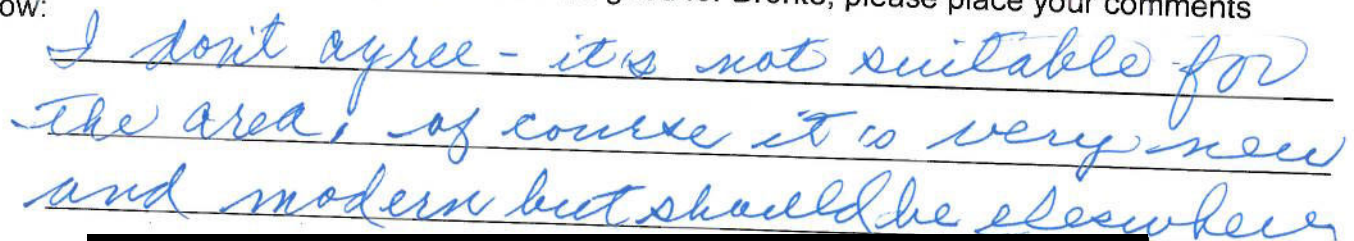 ow: for Bronko, please place your comments
I don't agree - it's not suitable for
the area, of course it is very new
and modern but should be elsewhere